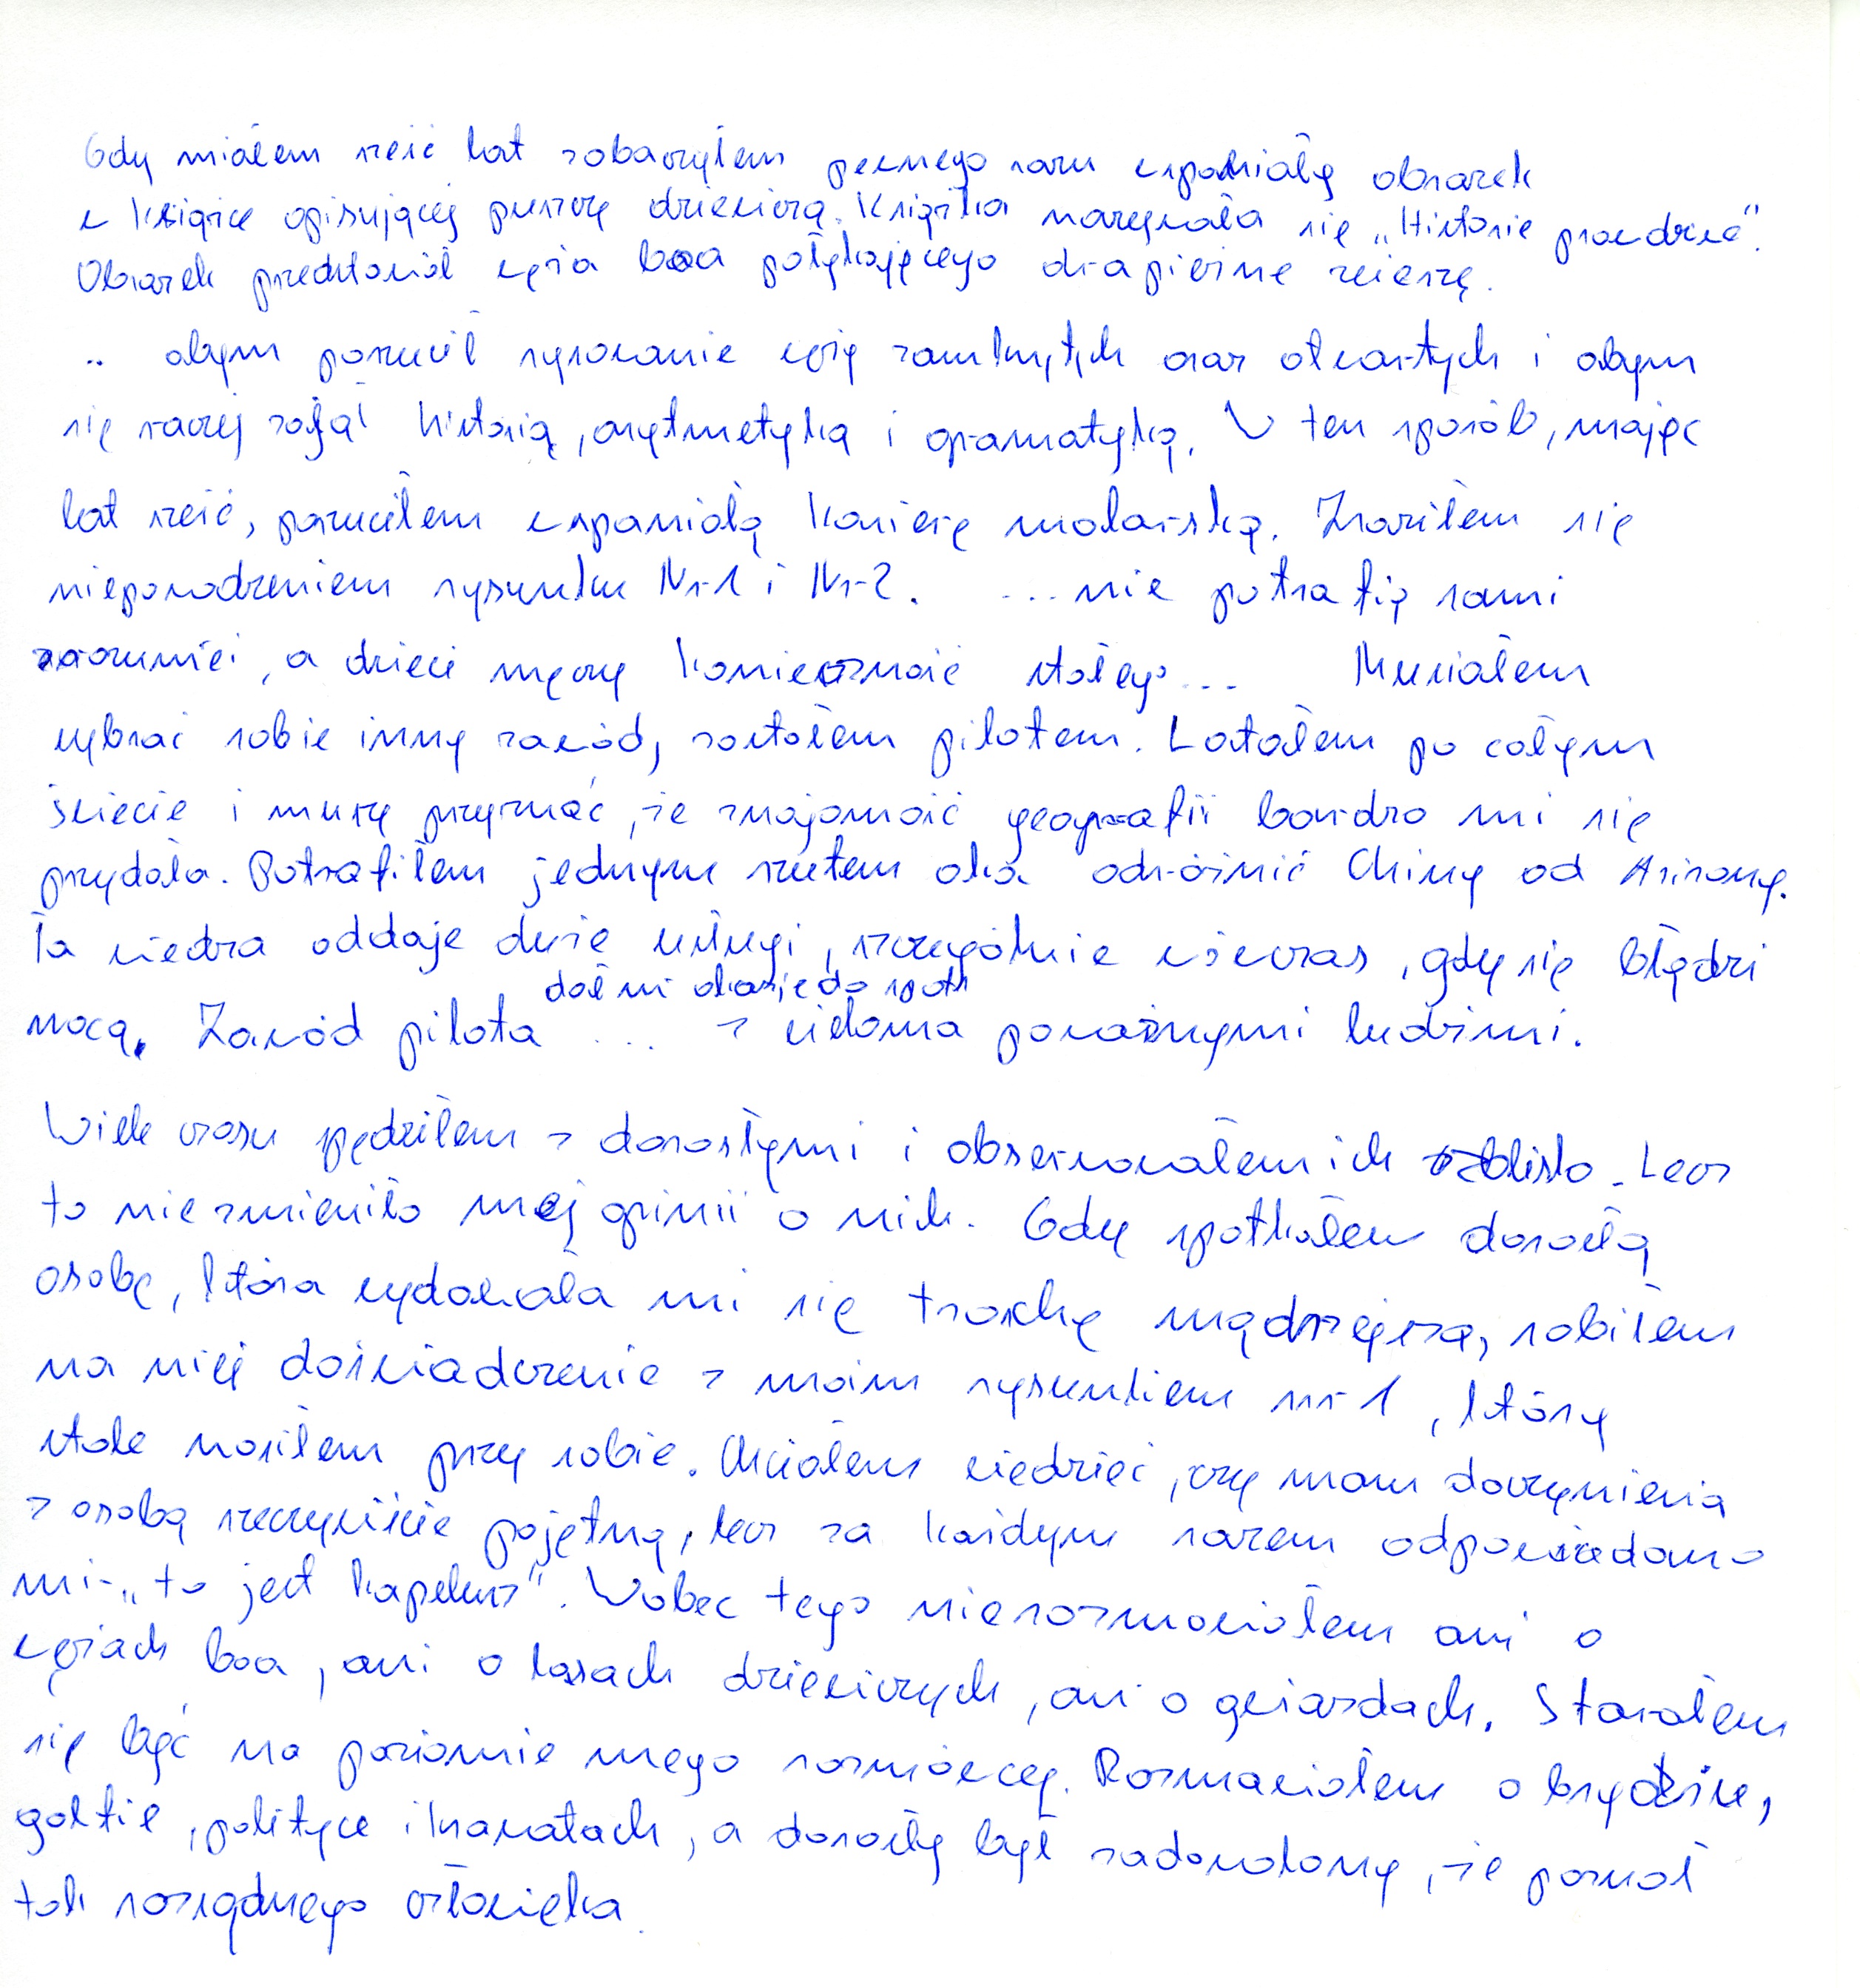 Gdy miałem sześć lat zobaczyłem pewnego razu wspaniały obrazek
w książce opisującej puszczę dziewiczą. Książka nazywała się „Historie prawdziwe”.
Obrazek przedstawiał węża boa połykającego drapieżne zwierzę.
.. abym porzucił rysowanie węży zamkniętych oraz otwartych i abym
się raczej zajął historią, arytmetyką i gramatyką. W ten sposób, mając
lat sześć, porzuciłem wspaniałą karierę malarską. Zraziłem się
niepowodzeniem rysunku Nr 1 i Nr 2. ...nie potrafią sami
zrozumieć, a dzieci męczy konieczność stałego... Musiałem
wybrać sobie inny zawód, zostałem pilotem. Latałem po całym
świecie i muszę przyznać, że znajomość geografii bardzo mi się
przydała. Potrafiłem jednym rzutem oka odróżnić Chiny od Arizony.
Ta wiedza oddaje duże usługi, szczególnie wówczas, gdy się błądzi
dał mi okazję do spotk
nocą. Zawód pilota ... z wieloma poważnymi ludźmi.
Wiele czasu spędziłem z dorosłymi i obserwowałem ich z bliska. Lecz
to nie zmieniło mej opinii o nich. Gdy spotkałem dorosłą
osobę, która wydawała mi się trochę mądrzejsza, robiłem
na niej doświadczenie z moim rysunkiem nr 1, który
stale nosiłem przy sobie. Chciałem wiedzieć, czy mam do czynienia
z osobą rzeczywiście pojętną, lecz za każdym razem odpowiadano
mi - „to jest kapelusz”. Wobec tego nie rozmawiałem ani o
wężach boa, ani o lasach dziewiczych, ani o gwiazdach. Starałem
się być na poziomie mego rozmówcy. Rozmawiałem o brydżu,
golfie, polityce i krawatach, a dorosły był zadowolony, że poznał
tak rozsądnego człowieka.